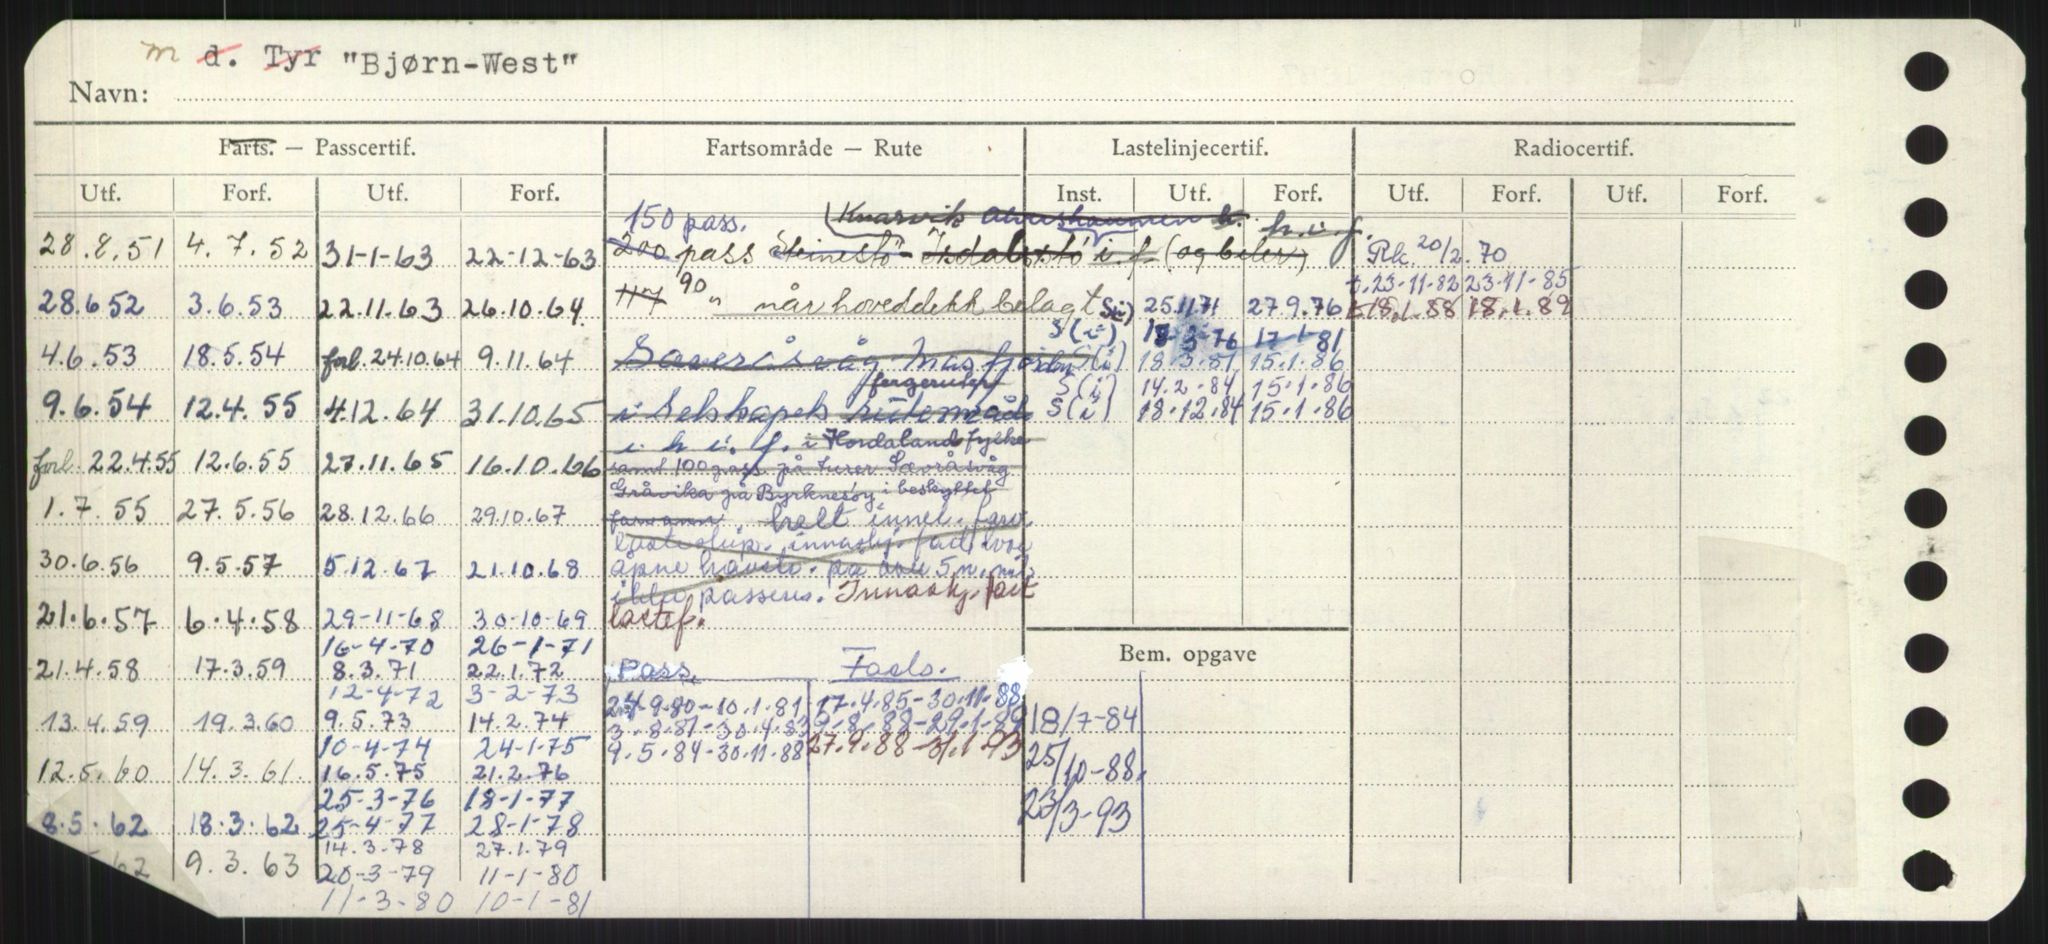 m d. Tyr "Bjørn-West"
Navn:
Farts. — Passcertif. Fartsområde — Rute Lastelinjecertif. Radiocertif.
Utf. Forf. Utf. Forf. Inst. Utf. Forf. Utf. Forf. Utf. Forf.
150 pass. (Knarvik h.i.f.
28.8.51 4.7.52 31-1-63 22-12-63 200 pass Steinestö - Isdalstö i.f. (og biler) Rk. 20/2.70
f. 23-11-82 23-11-85
28.6.52 3.6.53 22.11.63 26.10.64 117 90 " når hoveddekk belagt S(i) 25.11.71 27.9.76 18.1.88 18.1.89
S(i) 18-3-76 17-1-81
4.6.53 18.5.54 forl. 24.10.64 9.11.64 Sævråsvåg Masfjorden S(i) 18.3.81 15.1.86
fergeruter S(i) 14.2.84 15.1.86
9.6.54 12.4.55 4.12.64 31.10.65 i Selskapets ruteområde S(i) 18.12.84 15.1.86
i h.i.f. i Hordaland fylke
forl. 22.4.55 12.6.55 27.11.65 16.10.66 samt 100 pass. på turer Sævråsvåg
Gråvika på Byrknesöy i beskyttet
1.7.55 27.5.56 28.12.66 29.10.67 farvann. helt innel. farv
innaskj. fart hvor
30.6.56 9.5.57 5.12.67 21.10.68 åpne havstr. på over 5 n. mil
ikke passeres. Innaskj. fart
21.6.57 6.4.58 29-11-68 30-10-69 lastef.
16-4-70 26-1-71
21.4.58 17.3.59 8.3.71 22.1.72 Pass. Farts. Bem. opgave
12-4-72 3-2-73 24.9.80-10.1.81 17.4.85-30.11.88
13.4.59 19.3.60 9.5.73 14.2.74 3.8.81-30.4.83 9.8.88-29.1.89 18/7-84
10-4-74 24-1-75 9.5.84-30.11.88 27.9.88-31.1.93
12.5.60 14.3.61. 16.5.75 21.2.76 25/10-88.
25-3-76 18-1-77
8.5.62 18.3.62 25-4-77 28-1-78 23/3-93
14.3.78 27.1.79
62 9.3.63 20-3-79 11-1-80
11-3-80 10-1-81